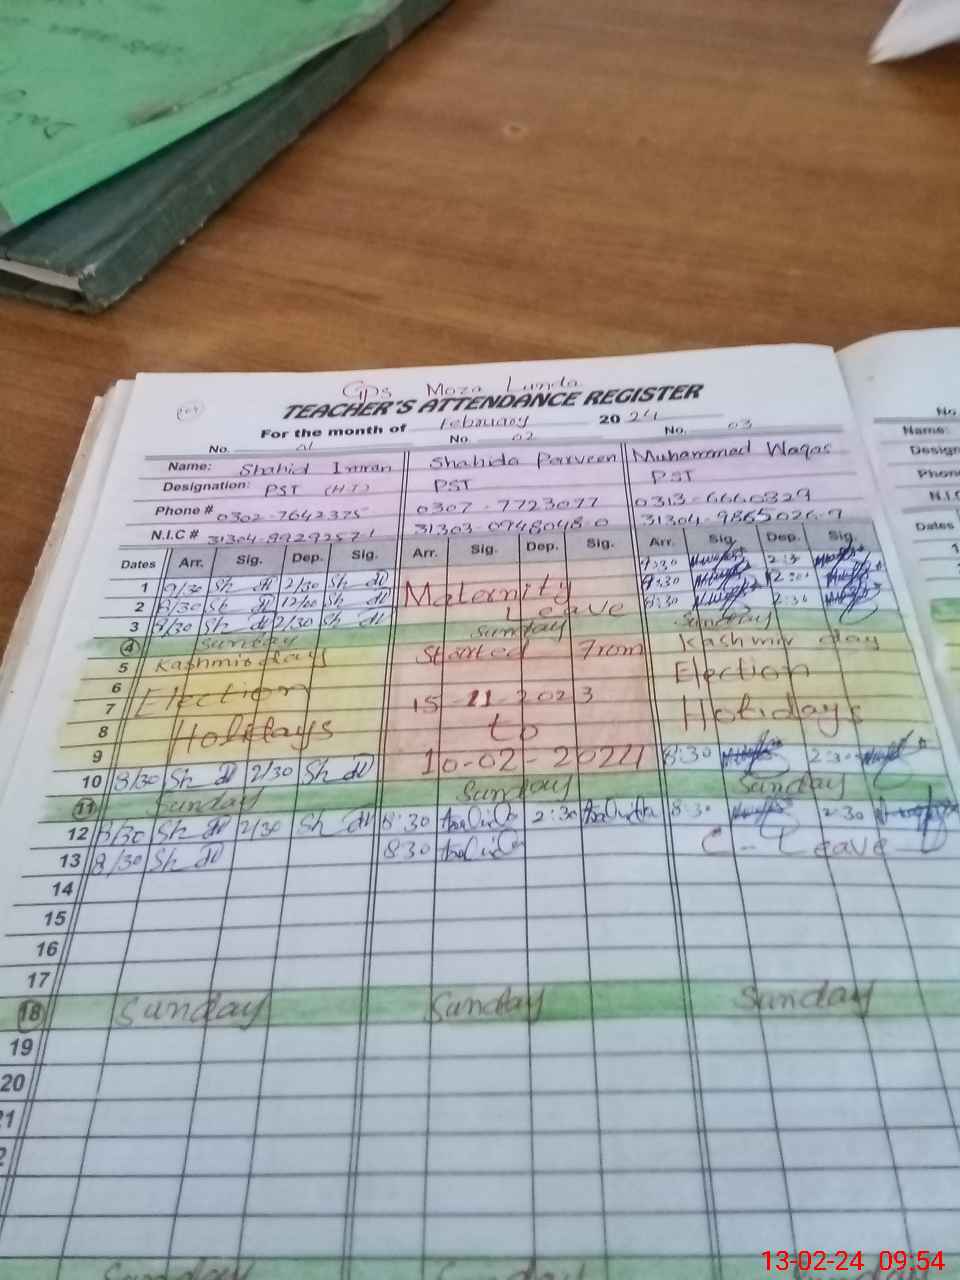 GPS Moza Lunda
TEACHER'S ATTENDANCE REGISTER
For the month of February 2024
No. 01 No. 02 No. 03
Name: Shahid Imran Shahida Parveen Muhammad Waqas
Designation: PST (HT) PST PST
Phone # 0302-7642375 0307-7723077 0313-6660329
N.I.C # 31304-8929257-1 31303-0948048-0 31304-9865026-9
Dates Arr. Sig. Dep. Sig. Arr. Sig. Dep. Sig. Arr. Sig. Dep. Sig.
1 9/30 Sh 2/30 Sh 2:3
2 8/30 Sh 12/00 Sh Maternity 9:30
3 9/30 Sh 2/30 Sh Leave 8:30 2:30
4 Sunday Sunday Sunday
5 Kashmir day Started From Kashmir day
6 Election Election
7 15-11-2023
8 Holidays to Holidays
9
10 8/30 Sh 2/30 Sh 10-02-2024 8:30 2:30
11 Sunday Sunday Sunday
12 8/30 Sh 2/30 Sh 8:30 2:30 8:30 2:30
13 8/30 Sh 8:30 C-Leave
14
15
16
17
18 Sunday Sunday Sunday
19
20
21
2
Sunday
No
Name:
Design
Phone
N.I.C
Dates
1
13-02-24 09:54